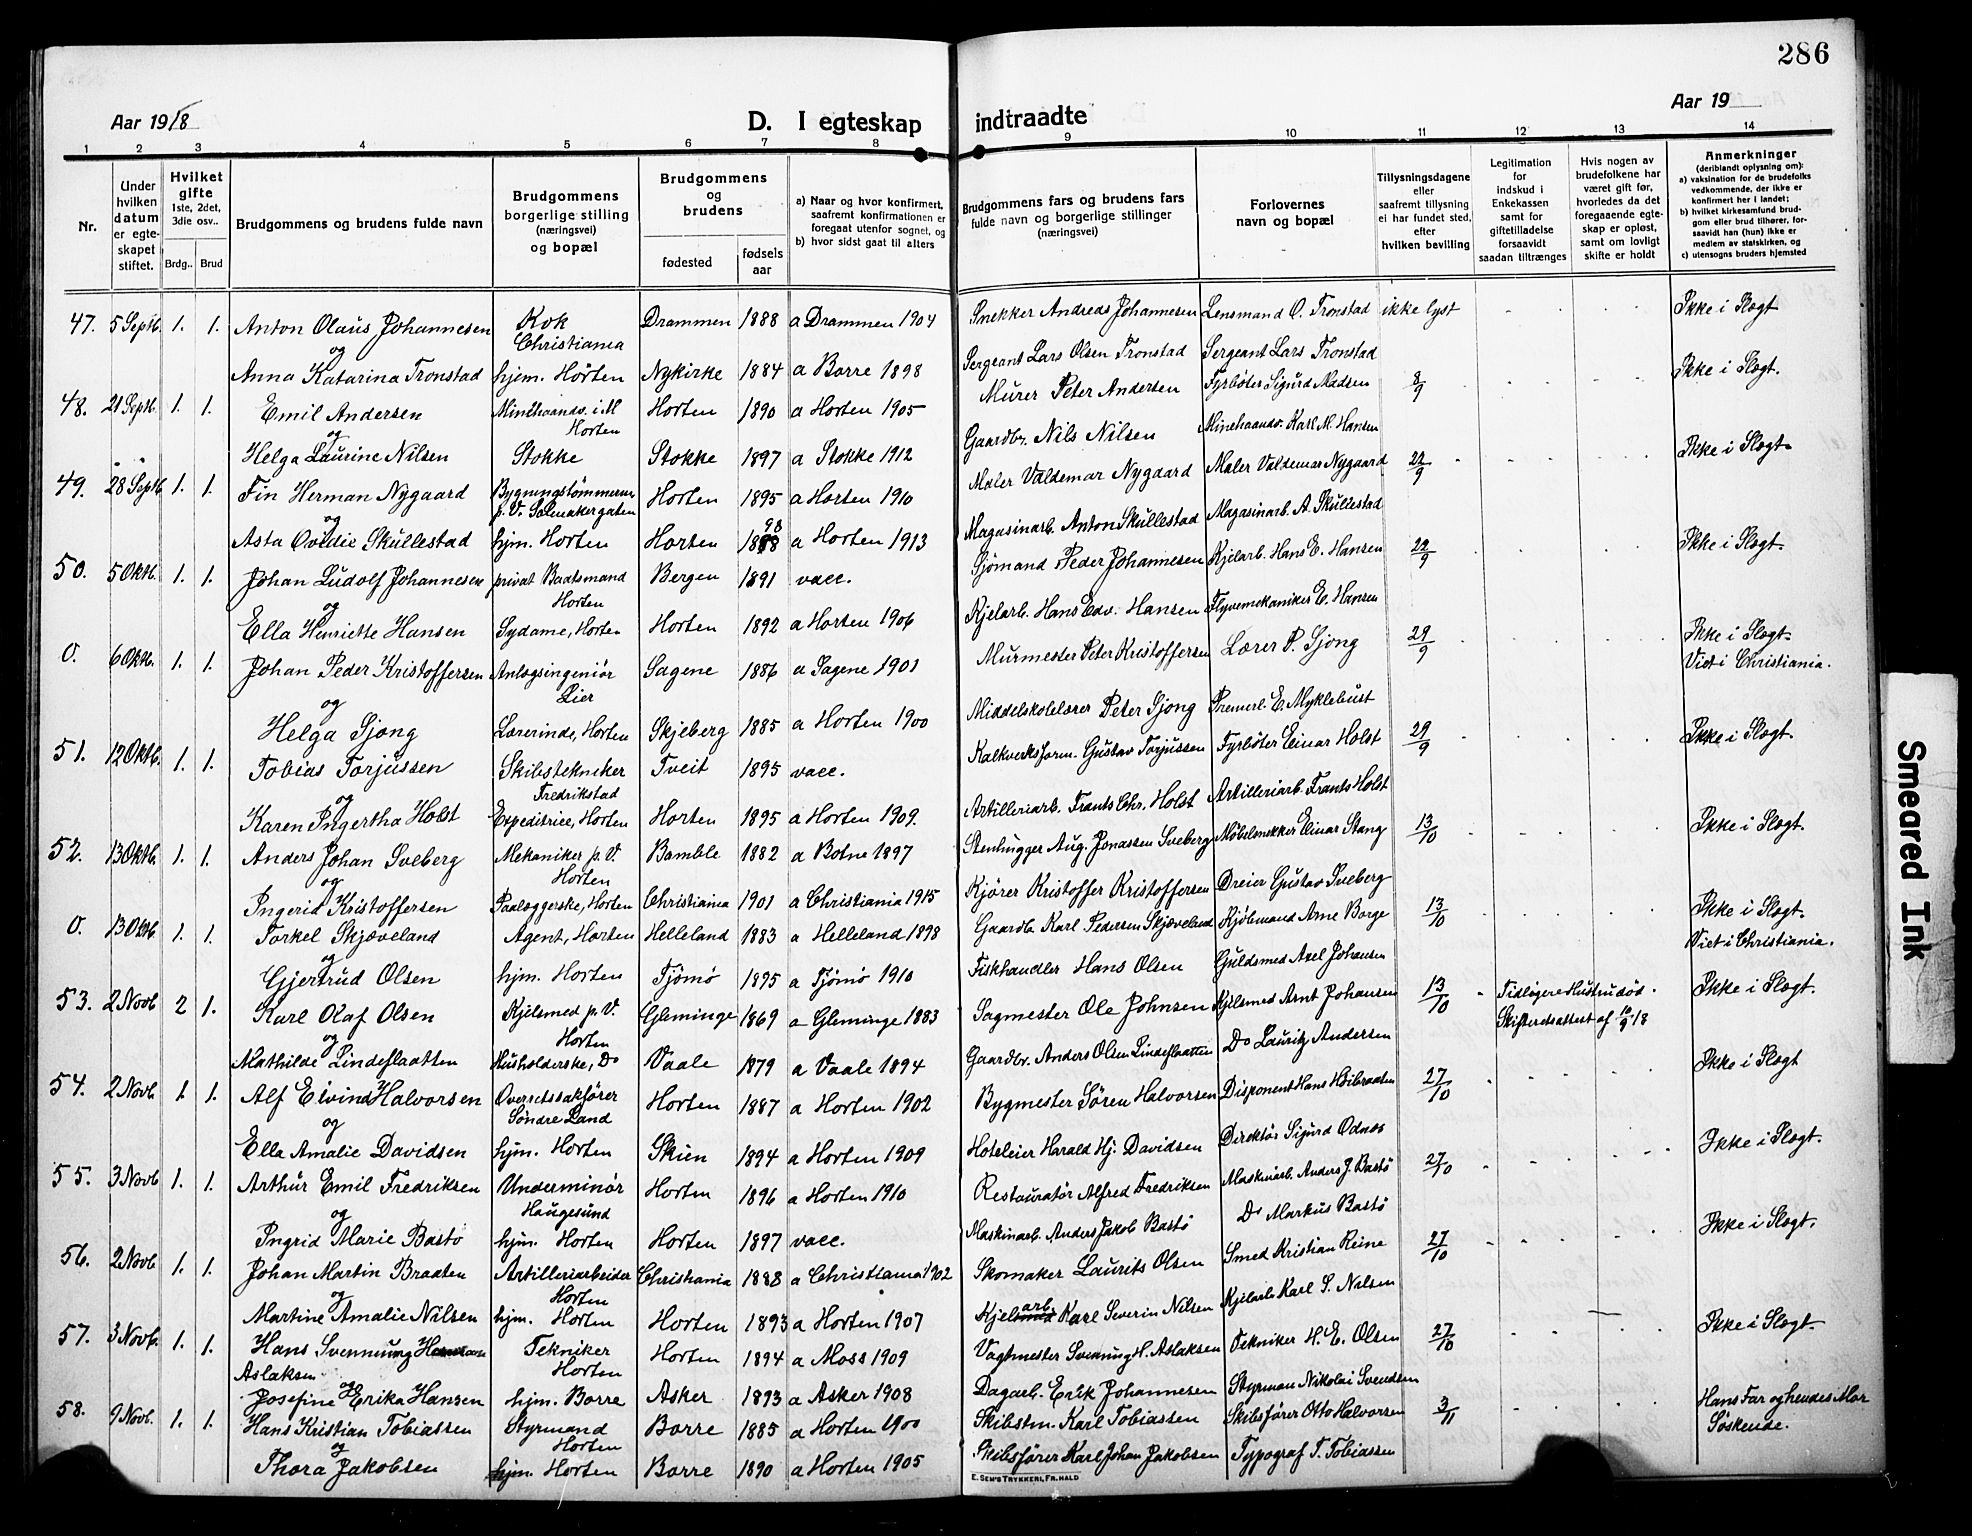 286
Aar 1918
D. I egteskap indtraadte
Aar 19
1 2 3 4 5 6 7 8 9 10 11 12 13 14
Nr.
Under hvilken datum er egteskapet stiftet.
Hvilket gifte 1ste, 2det, 3die osv..
Brdg.. Brud
Brudgommens og brudens fulde navn
Brudgommens borgerlige stilling (næringsvei) og bopæl
Brudgommens og brudens
fødested
fødsels aar
a) Naar og hvor konfirmert, saafremt konfirmationen er foregaat utenfor sognet, og
b) hvor sidst gaat til alters
Brudgommens fars og brudens fars fulde navn og borgerlige stillinger (næringsvei)
Forlovernes navn og bopæl
Tillysningsdagene eller saafremt tillysning ei har fundet sted, efter hvilken bevilling
Legitimation for indskud i Enkekassen samt for giftetilladelse forsaavidt saadan tiltrænges
Hvis nogen av brudefolkene har været gift før, hvorledes da det foregaaende egteskap er opløst, samt om lovligt skifte er holdt
Anmerkninger (deriblandt oplysning om):
a) vaksination for de brudefolks vedkommende, der ikke er konfirmert her i landet;
b) hvilket kirkesamfund brudgom eller brud tilhører, forsaavidt han (hun) ikke er medlem av statskirken, og
c) utensogns bruders hjemsted
47. 5 Septb. 1. 1. Anton Olaus Johannesen Kok Christiania Drammen 1888 a Drammen 1904 Snekker Andreas Johannesen Lensmand O. Tronstad ikke lyst Ikke i Slægt
og
Anna Katarina Tronstad hjm. Horten Nykirke 1884 a Borre 1898 Sergeant Lars Olsen Tronstad Sergeant Lars Tronstad
48. 21 Septb. 1. 1. Emil Andersen Minehaandv. i M Horten Horten 1890 a Horten 1905 Murer Peter Andersen Fyrbøter Sigurd Madsen 8/9 Ikke i Slægt.
og
Helga Laurine Nilsen Stokke Stokke 1897 a Stokke 1912 Gaardbr. Nils Nilsen Minehaandv. Karl M. Hansen
49. 28 Septb 1. 1. Fin Herman Nygaard Bygningstømmerm. p. V. Salmakergaten Horten 1895 a Horten 1910 Maler Valdemar Nygaard Maler Valdemar Nygaard 22/9 Ikke i Slægt.
og
Asta Ovidie Skullestad hjm. Horten Horten 1898 a Horten 1913 Magasinarb. Anton Skullestad Magasinarb. A. Skullestad
50. 5 Oktb. 1. 1. Johan Ludolf Johannesen privat Baatsmand Horten Bergen 1891 vacc. Sjømand Peder Johannesen Kjelarb. Hans E. Hansen 22/9 Ikke i Slægt.
og
Ella Henriette Hansen Sydame, Horten Horten 1892 a Horten 1906 Kjelarb. Hans Edv. Hansen Flyvemekaniker E. Hansen
0. 6 Oktb. 1. 1. Johan Peder Kristoffersen Anlægsingeniør Lier Sagene 1886 a Sagene 1901 Murmester Peter Kristoffersen Lærer P. Sjong 29/9 Ikke i Slægt. Viet i Christiania.
og
Helga Sjong Lærerinde, Horten Skjeberg 1885 a Horten 1900 Middelskolelærer Peter Sjong Premerl. E. Myklebust
51. 12 Oktb. 1. 1. Tobias Torjussen Skibstekniker Fredrikstad Tveit 1895 vacc. Kalkverksform. Gustav Torjussen Fyrbøter Einar Holst 29/9 Ikke i Slægt.
og
Karen Ingertha Holst Expeditrice, Horten Horten 1895 a Horten 1909. Artilleriarb. Frants Chr. Holst Artilleriarb. Frants Holst
52. 13 Oktb. 1. 1. Anders Johan Sveberg Mekaniker p. V. Horten Bamble 1882 a Botne 1897 Stenhugger Aug. Jonassen Sveberg Møbelsnekker Einar Stang 13/10 Ikke i Slægt.
og
Ingerid Kristoffersen Paalæggerske, Horten Christiania 1901 a Christiania 1915 Kjører Kristoffer Kristoffersen Dreier Gustav Sveberg
0. 13 Oktb 1. 1. Torkel Skjæveland Agent, Horten Helleland 1883 a Helleland 1898 Gaardb. Karl Pedersen Skjæveland Kjøbmand Arne Borge 13/10 Ikke i Slægt. Viet i Christiania.
og
Gjertrud Olsen hjm. Horten Tjømø 1895 a Tjømø 1910 Fiskhandler Hans Olsen Guldsmed Axel Johansen
53. 2 Novb 2 1. Karl Olaf Olsen Kjelsmed p. V. Horten Gleminge 1869 a Gleminge 1883 Sagmester Ole Johnsen Kjelsmed Arnt Johansen 13/10 Tidligere Hustru død. Skifteretsattest af 10/9 18 Ikke i Slægt.
og
Mathilde Lindeflaatten Husholderske, Do Vaale 1879 a Vaale 1894 Gaardbr. Anders Olsen Lindeflaatten Do Lauritz Andersen
54. 2 Novb. 1. 1. Alf Eivind Halvorsen Overretssakfører Søndre Land Horten 1887 a Horten 1902 Bygmester Søren Halvorsen Disponent Hans Høibraaten 27/10 Ikke i Slægt
og
Ella Amalie Davidsen hjm. Horten Skien 1894 a Horten 1909 Hoteleier Harald Hj. Davidsen Direktør Sigurd Odnes
55. 3 Novb 1. 1. Arthur Emil Fredriksen Underminør Haugesund Horten 1896 a Horten 1910 Restauratør Alfred Fredriksen Maskinarb. Anders J. Bastø 27/10 Ikke i Slægt.
og
Ingrid Marie Bastø hjm. Horten Horten 1897 vacc. Maskinarb. Anders Jakob Bastø Do Markus Bastø
56. 2 Novb 1. 1. Johan Martin Braaten Artilleriarbeider Horten Christiania 1888 a Christiania 1902 Skomaker Laurits Olsen Smed Kristian Reine 27/10 Ikke i Slægt.
og
Martine Amalie Nilsen hjm. Horten Horten 1893 a Horten 1907 Kjelarb. Karl Severin Nilsen Kjelarb Karl S. Nilsen
57. 3 Novb. 1. 1. Hans Svennung Aslaksen Tekniker Horten Horten 1894 a Moss 1909 Vagtmester Svennung H. Aslaksen Tekniker H. E. Olsen 27/10 Ikke i Slægt.
og
Josefine Erika Hansen hjm. Borre Asker 1893 a Asker 1908 Dagarb. Erik Johannesen Styrman Nikolai Svendsen
58. 9 Novb. 1. 1. Hans Kristian Tobiassen Styrmand Horten Borre 1885 a Horten 1900 Skibstm. Karl Tobiassen Skibsfører Otto Halvorsen 3/11 Hans Far og hendes Mor Søskende.
og
Thora Jakobsen hjm. Horten Borre 1890 a Horten 1905 Skibsfører Karl Johan Jakobsen Typograf T. Tobiassen
E. SEM'S TRYKKERI, FR. HALD
Smeared Ink